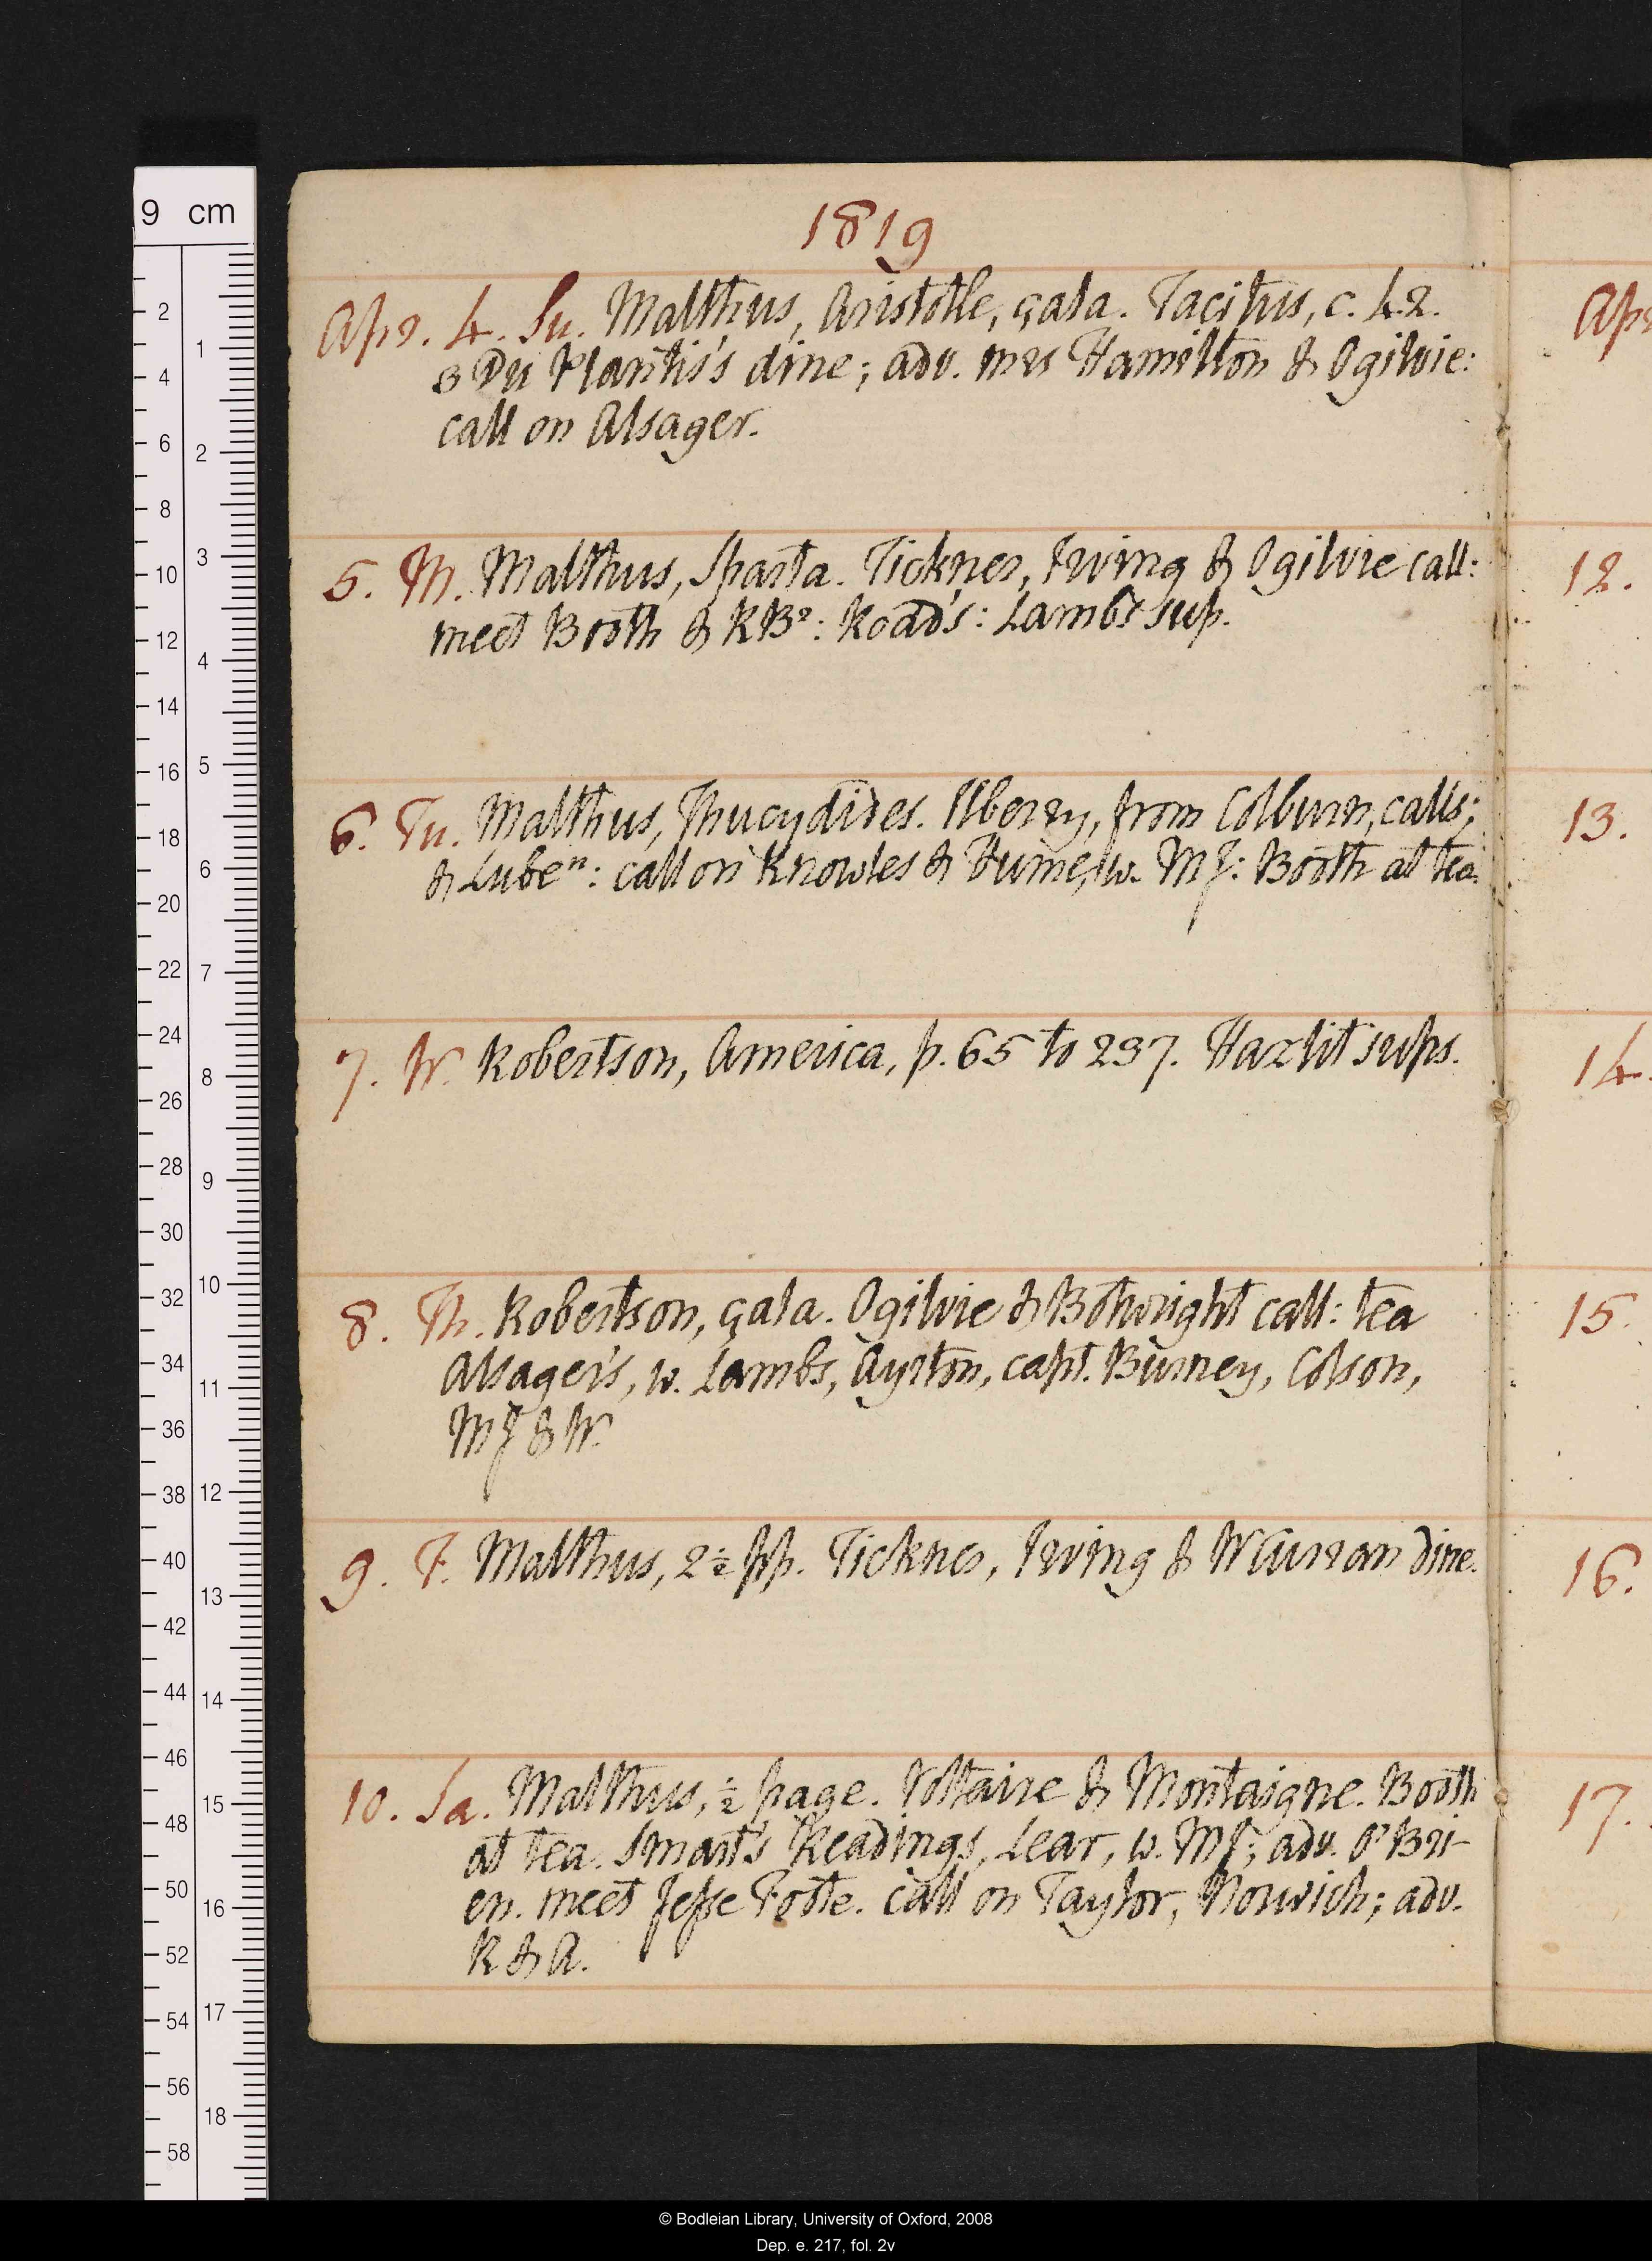 9 cm
1819
Apr. 4. Su. Malthus, Aristotle, çala. Tacitus, c. 42.
3 Du Plantis's dine; adv. mrs Hamilton & Ogilvie:
call on Alsager.
5. M. Malthus, Sparta. Ticknor, Irving & Ogilvie call:
meet Booth & RBr: Road's: Lambs sup.
6. Tu. Malthus, Thucydides. Ilbery, from Colburn, calls;
& Luben: call on Knowles & Hume, w. MJ: Booth at tea.
7. W. Robertson, America, p. 65 to 237. Hazlit sups.
8. Th. Robertson, çala. Ogilvie & Botwright call: tea
Alsager's, w. Lambs, Ayrton, capt. Burney, Colson,
MJ & W.
9. F. Malthus, 2½ pp. Ticknor, Irving & WCurran dine.
10. Sa. Malthus, ½ page. Voltaire & Montaigne. Booth
at tea. Smart's Readings, Lear, w. MJ; adv. O'Bri-
en. meet Jesse Foote. call on Taylor, Norwich; adv.
K & A.
Apr
12.
13.
14.
15.
16.
17.
2 4 6 8 10 12 14 16 18 20 22 24 26 28 30 32 34 36 38 40 42 44 46 48 50 52 54 56 58
1 2 3 4 5 6 7 8 9 10 11 12 13 14 15 16 17 18
© Bodleian Library, University of Oxford, 2008
Dep. e. 217, fol. 2v